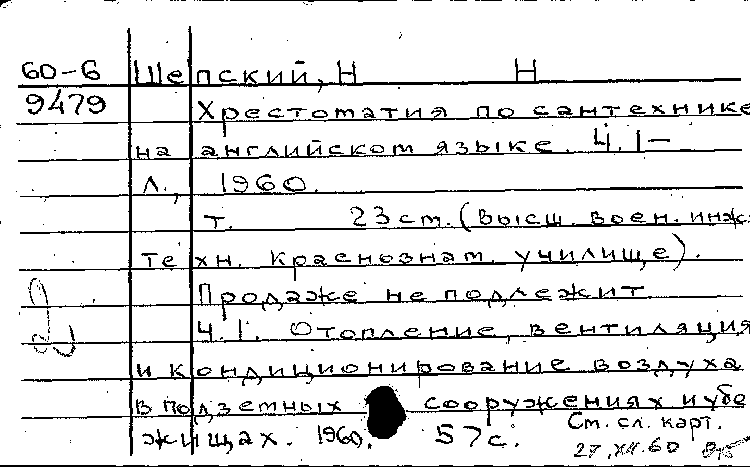 60-6 Шепский, Н Н
9479 Хрестоматия по сантехнике
на английском языке. Ч. 1—
Л., 1960.
т. 23 см. (Высш. воен. инж.
техн. Краснознам. училище).
Продаже не подлежит
Ч.1. Отопление, вентиляция
и кондиционирование воздуха
в подземных сооружениях и убе
жищах. 1960. 57 с. См. сл. карт.
27.XII.60